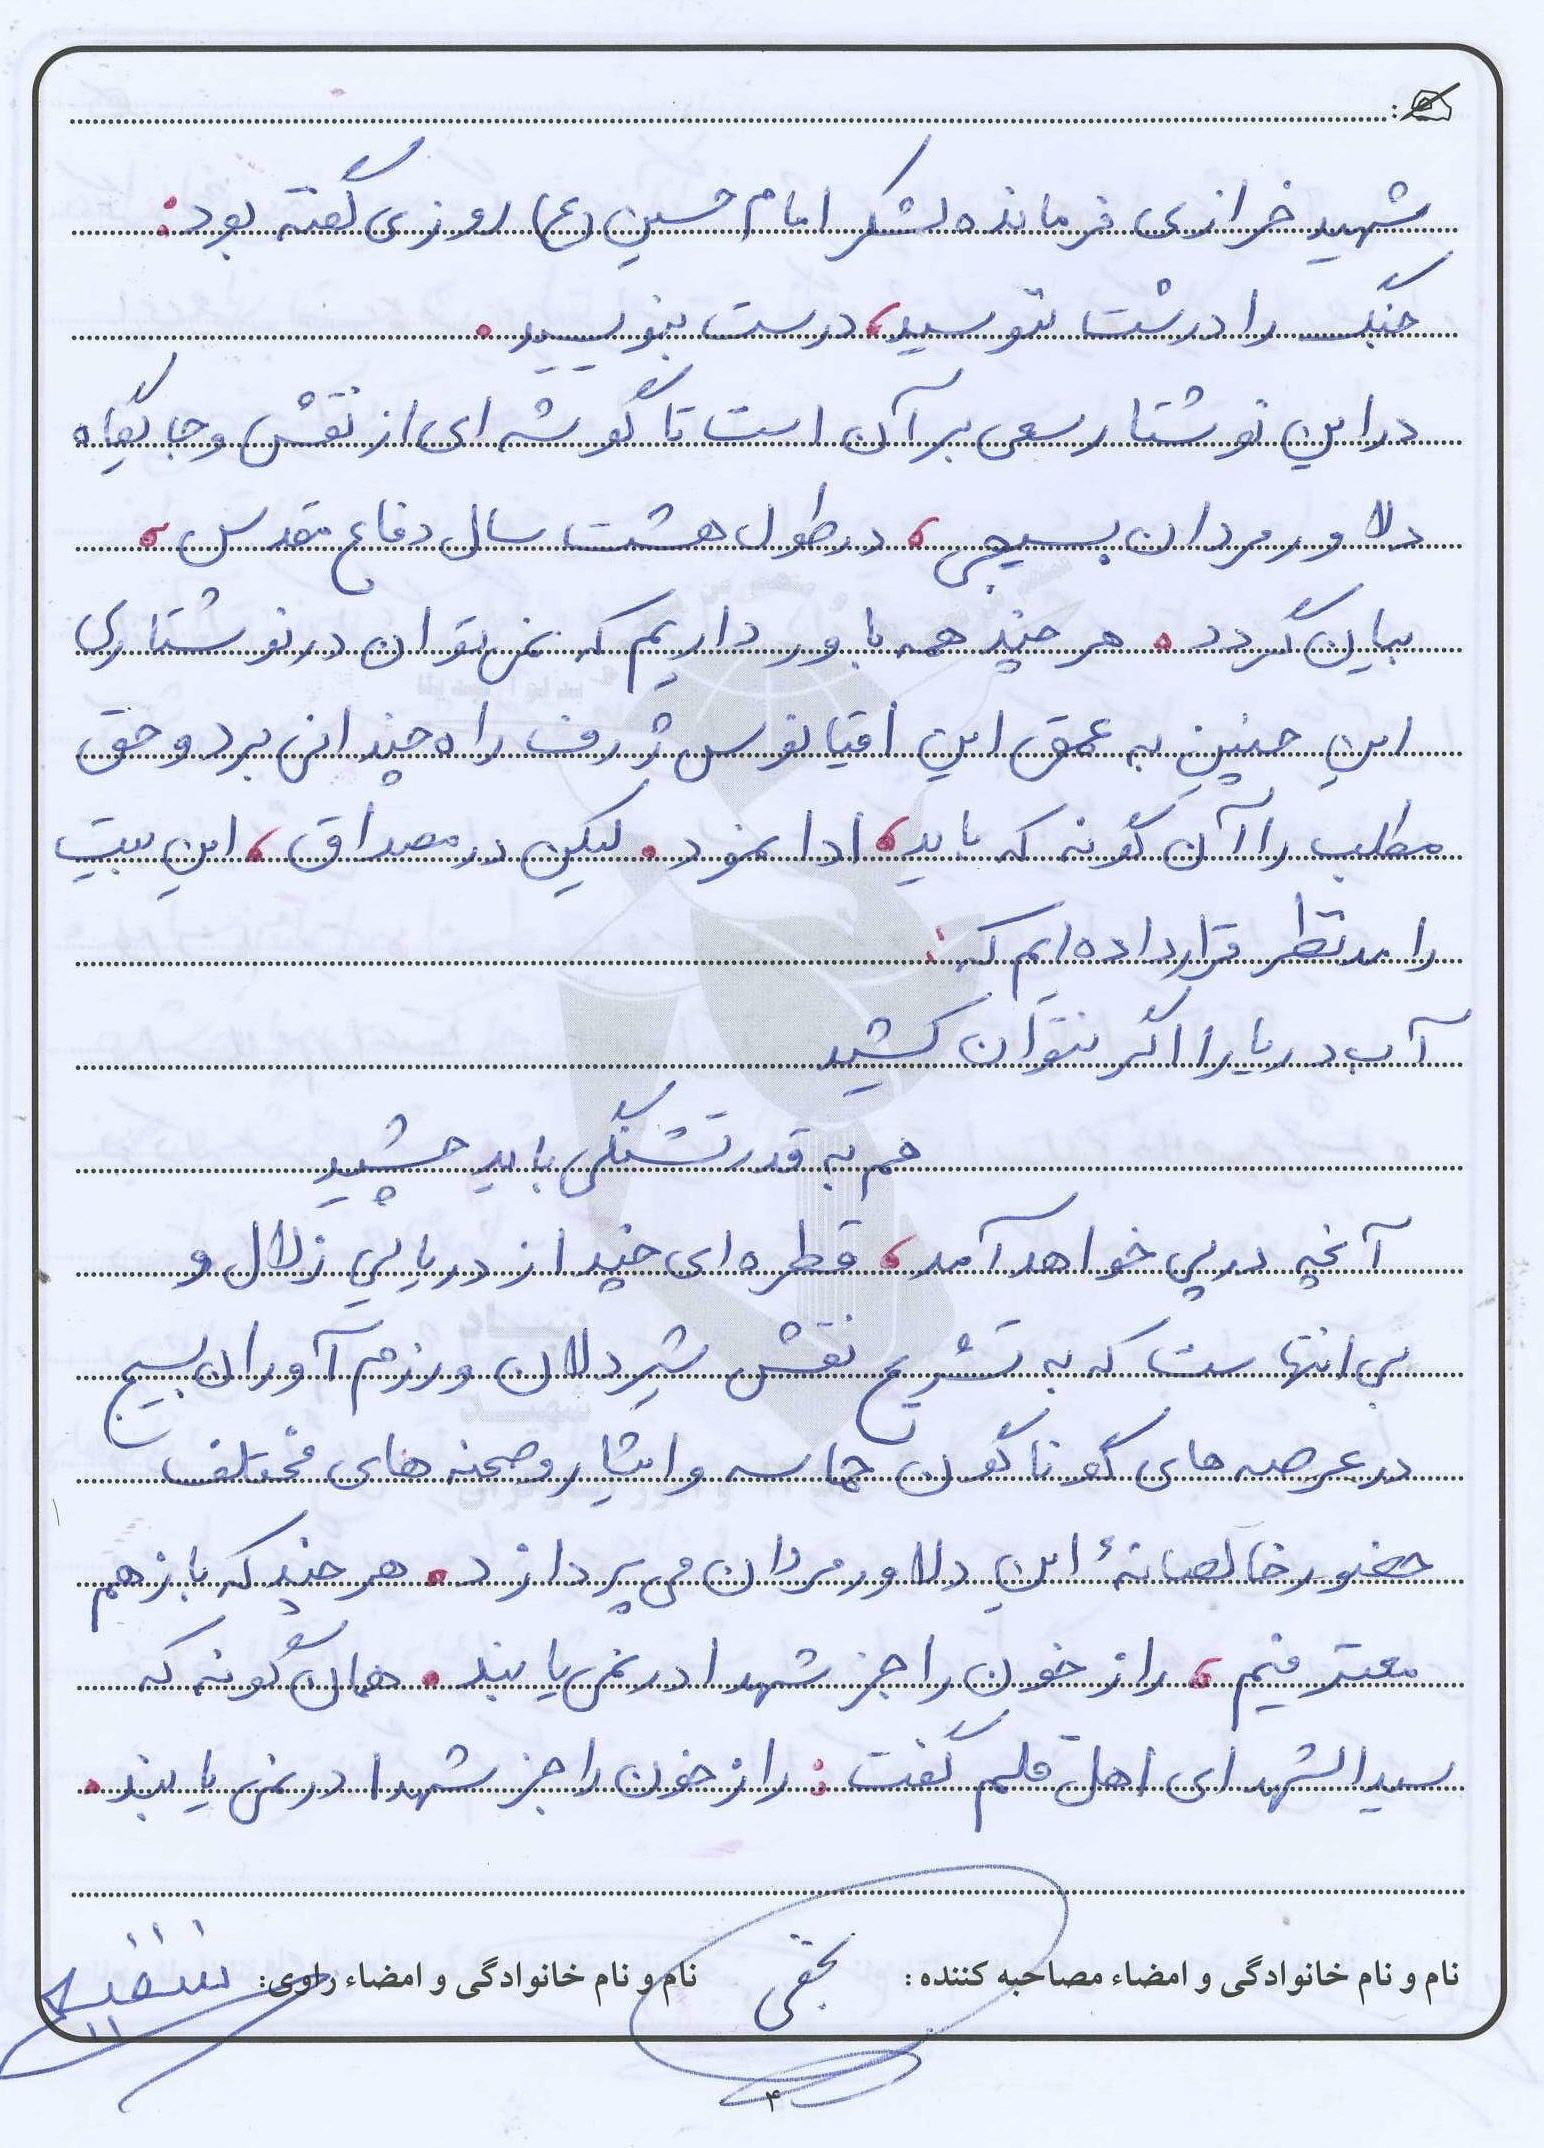 شهید خرازی فرمانده لشکر امام حسین (ع) روزی گفته بود:
جنگ را درشت ننویسید، درست بنویسید.
در این نوشتار سعی بر آن است تا گوشه ای از نقش و جایگاه
دلاور مردان بسیجی، در طول هشت سال دفاع مقدس،
بیان گردد. هر چند همه باور داریم که نمی توان در نوشتاری
این چنین به عمق این اقیانوس ژرف راه چندانی برد و حق
مطلب را آن گونه که باید، ادا نمود. لیکن در مصداق، این بیت
را مد نظر قرار داده ایم که:
آب دریا را اگر نتوان کشید
هم به قدر تشنگی باید چشید
آنچه در پی خواهد آمد، قطره ای چند از دریایی زلال و
بی انتهاست که به تشریح نقش شیردلان و رزم آوران بسیج
در عرصه های گوناگون حماسه و ایثار و صحنه های مختلف
حضور خالصانهٔ این دلاور مردان می پردازد. هر چند که باز هم
معترفیم، راز خون را جز شهدا در نمی یابند. همان گونه که
سید الشهدای اهل قلم گفت: راز خون را جز شهدا در نمی یابند.
نام و نام خانوادگی و امضاء مصاحبه کننده: نجفی نام و نام خانوادگی و امضاء راوی:
۴